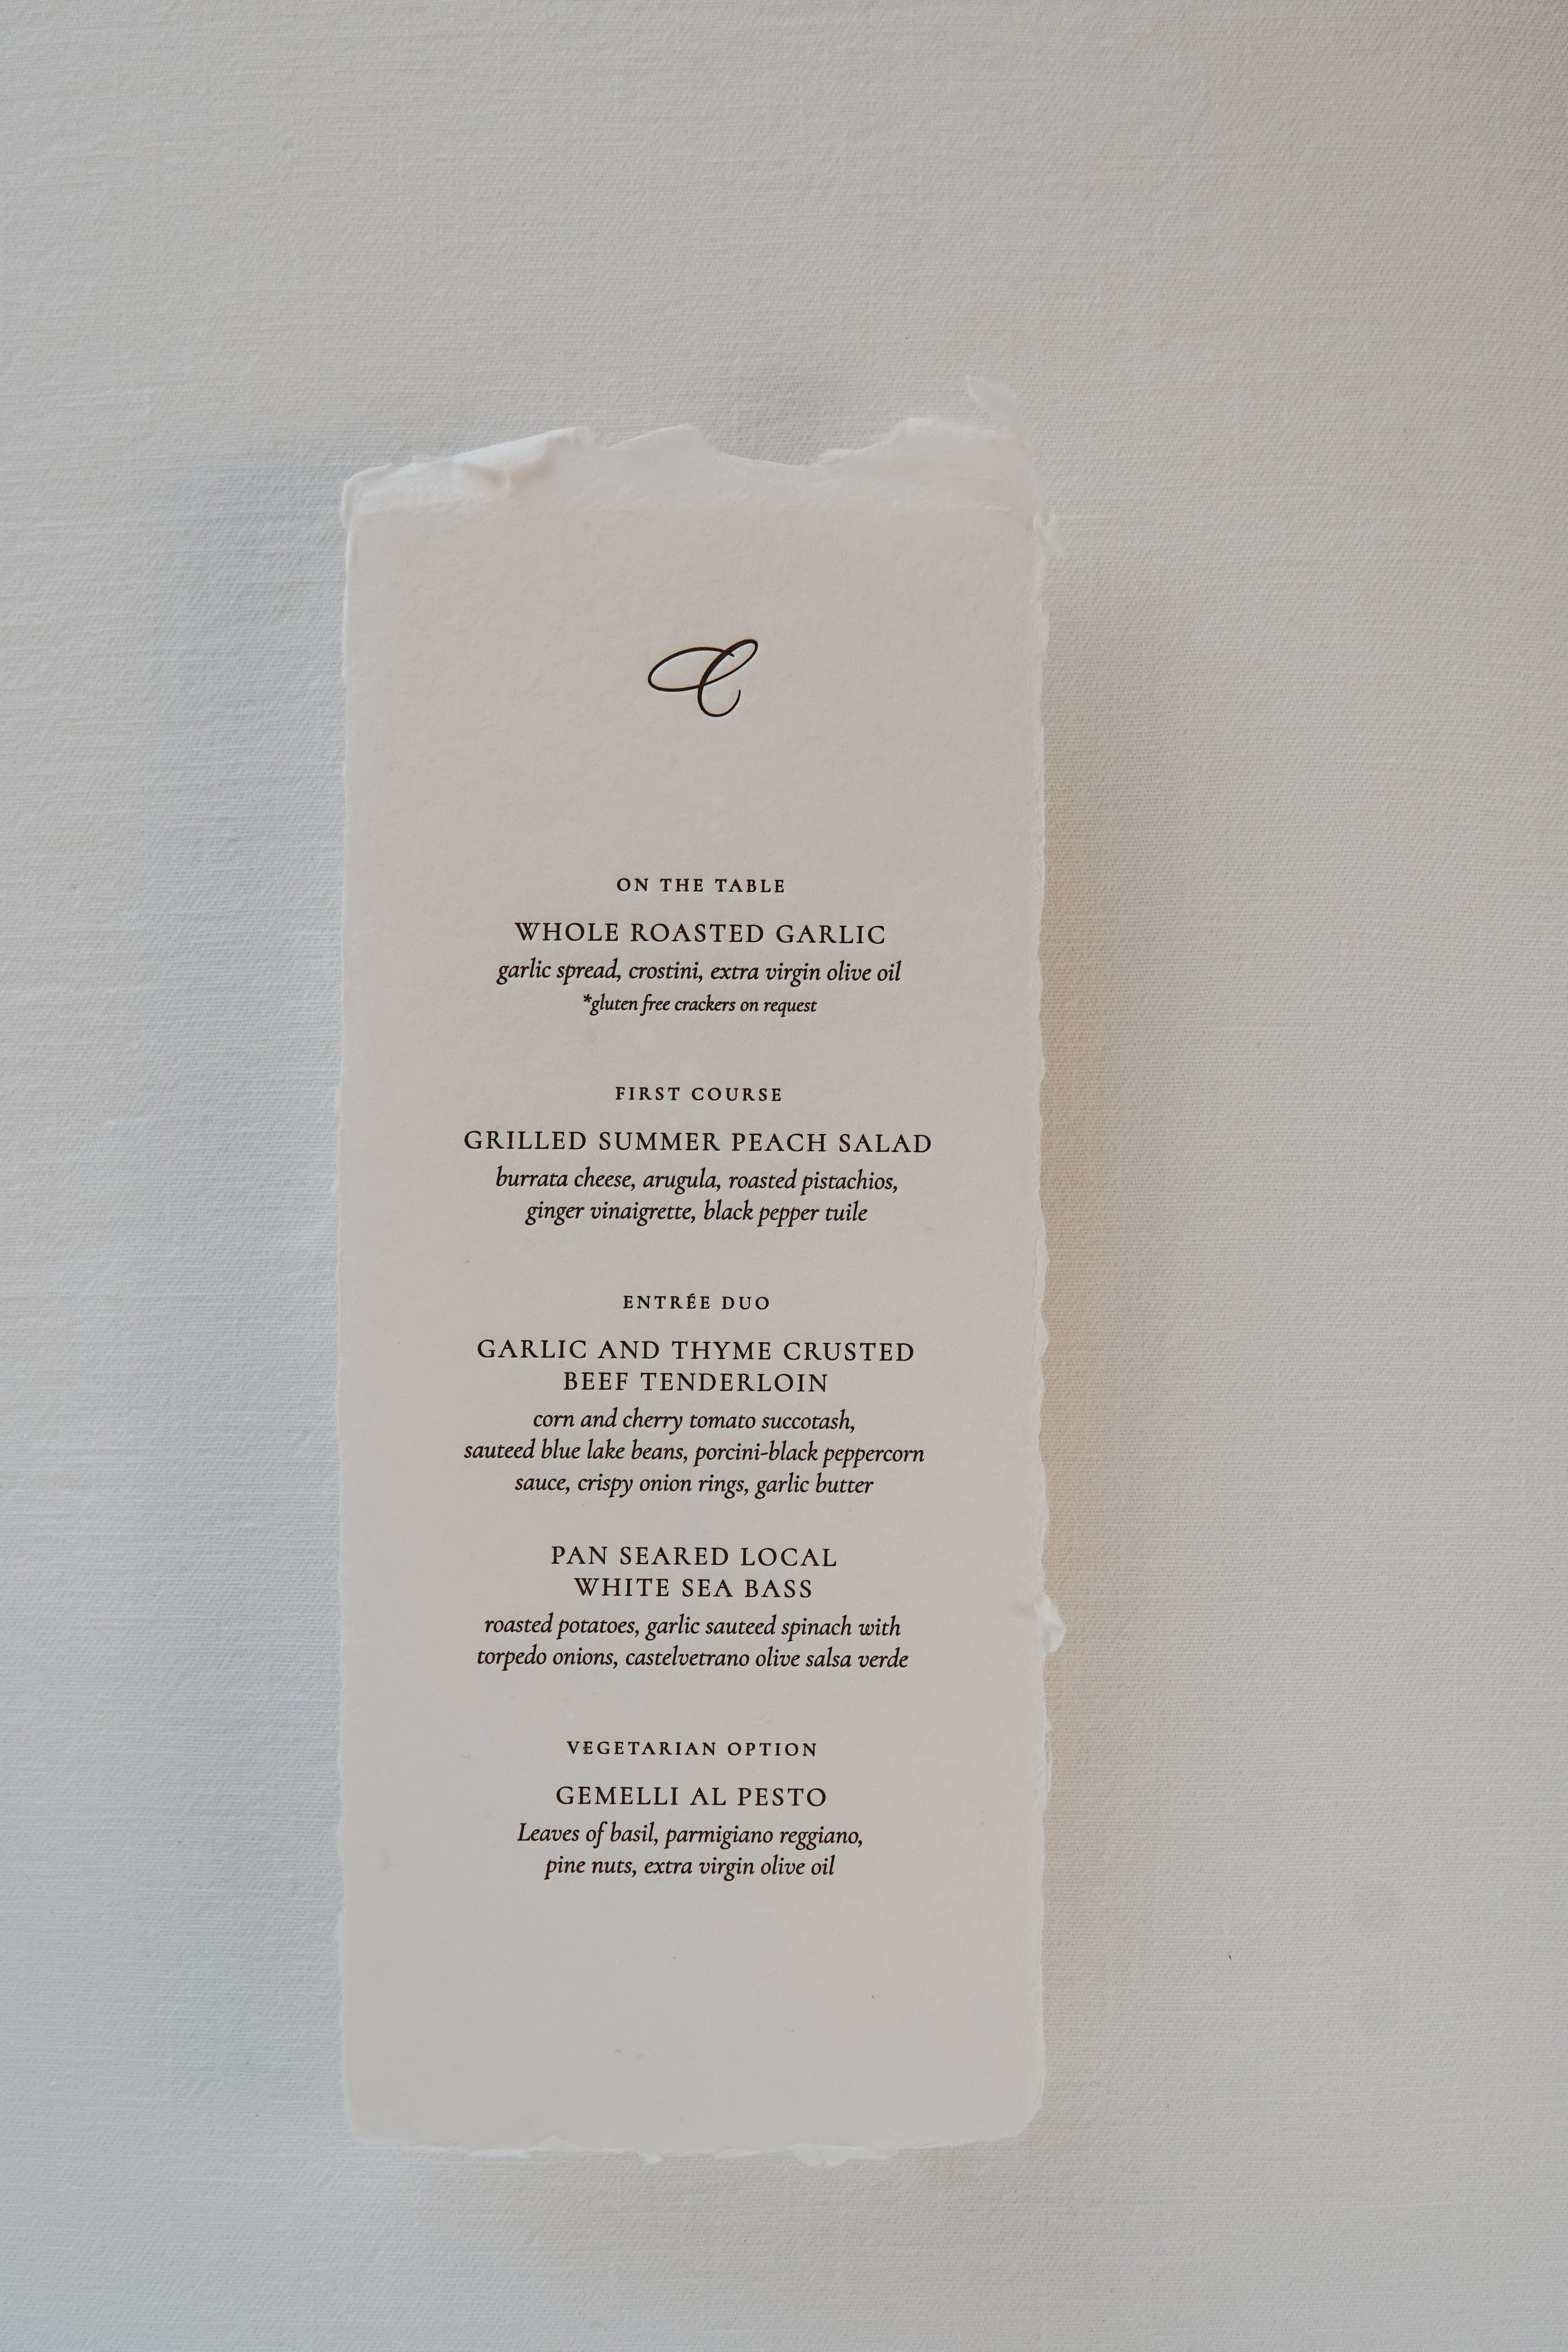 C
ON THE TABLE
WHOLE ROASTED GARLIC
garlic spread, crostini, extra virgin olive oil
*gluten free crackers on request
FIRST COURSE
GRILLED SUMMER PEACH SALAD
burrata cheese, arugula, roasted pistachios,
ginger vinaigrette, black pepper tuile
ENTRÉE DUO
GARLIC AND THYME CRUSTED
BEEF TENDERLOIN
corn and cherry tomato succotash,
sauteed blue lake beans, porcini-black peppercorn
sauce, crispy onion rings, garlic butter
PAN SEARED LOCAL
WHITE SEA BASS
roasted potatoes, garlic sauteed spinach with
torpedo onions, castelvetrano olive salsa verde
VEGETARIAN OPTION
GEMELLI AL PESTO
Leaves of basil, parmigiano reggiano,
pine nuts, extra virgin olive oil